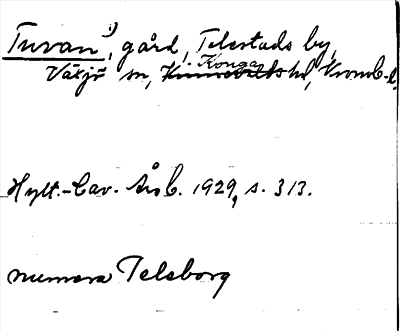 Tuvan¹⁾, gård, Telestads by,
Växjö sn, Kinnevalds Konga hd, Kronob. l.
Hylt.-Cav. Årsb. 1929, s. 313.
numera Telsborg